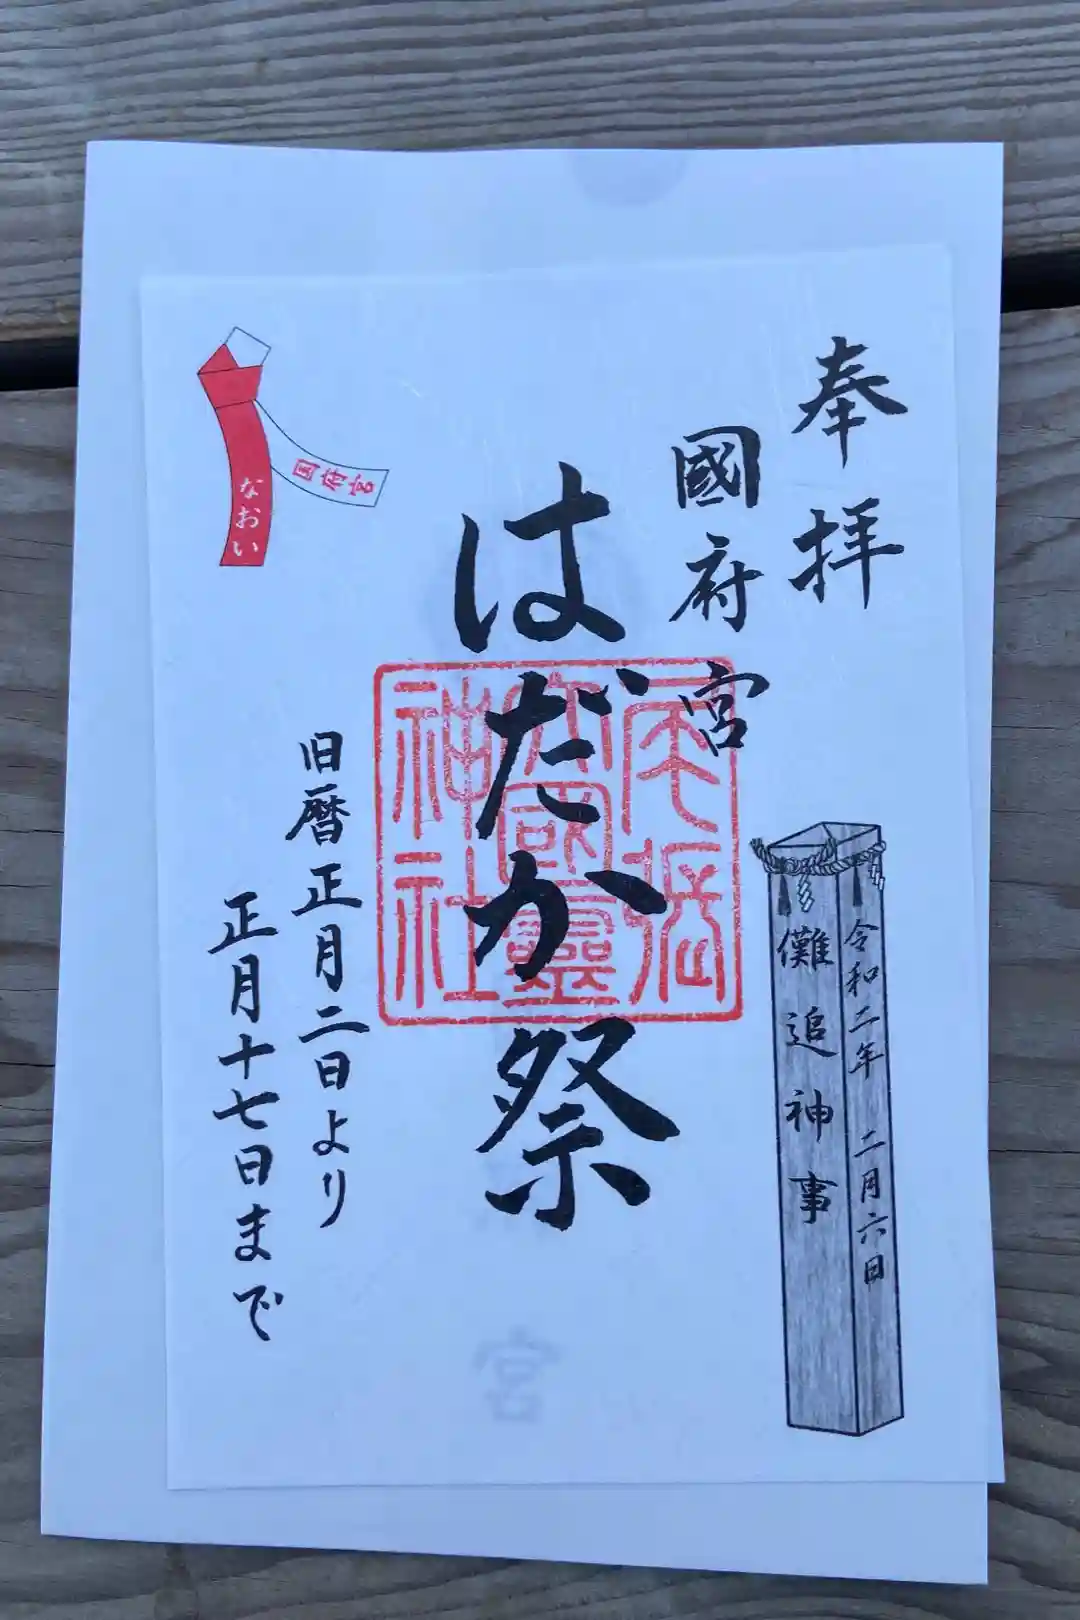 奉拝
國府宮
はだか祭
旧暦正月二日より
正月十七日まで
令和二年 二月六日
儺追神事
国府宮
なおい
尾張
大國霊
神社
宮